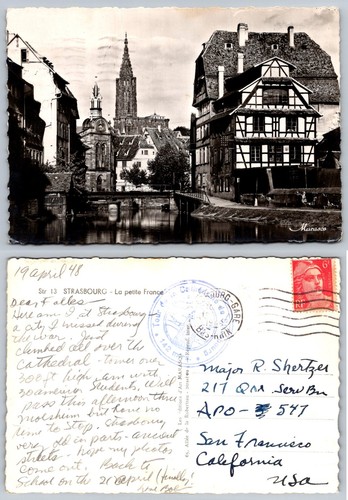 Munasco
19 april 48
Str 13 STRASBOURG - La petite France
Dear Folks
Here am I at Strasbourg
a city I missed during
the war. Just
climbed all over the
Cathedral - tower over
300 ft high. am with
30 american Students. Will
pass this afternoon thru
molsheim but have no
time to stop. Strasbourg
very old in parts - ancient
streets - hope my photos
come out. Back to
School on the 21 april (finally!)
STRASBOURG-GARE
BAS-RHIN
6F
Major R. Shertzer
217 Qm Serv Bn
APO - 547
San Francisco
California
USA